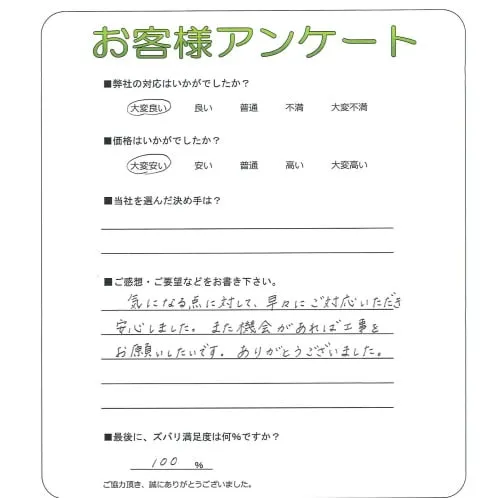 お客様アンケート
■弊社の対応はいかがでしたか？
大変良い　良い　普通　不満　大変不満
■価格はいかがでしたか？
大変安い　安い　普通　高い　大変高い
■当社を選んだ決め手は？
■ご感想・ご要望などをお書き下さい。
気になる点に対して、早々にご対応いただき
安心しました。また機会があれば工事を
お願いしたいです．ありがとうございました。
■最後に、ズバリ満足度は何%ですか？
100 %
ご協力頂き、誠にありがとうございました。